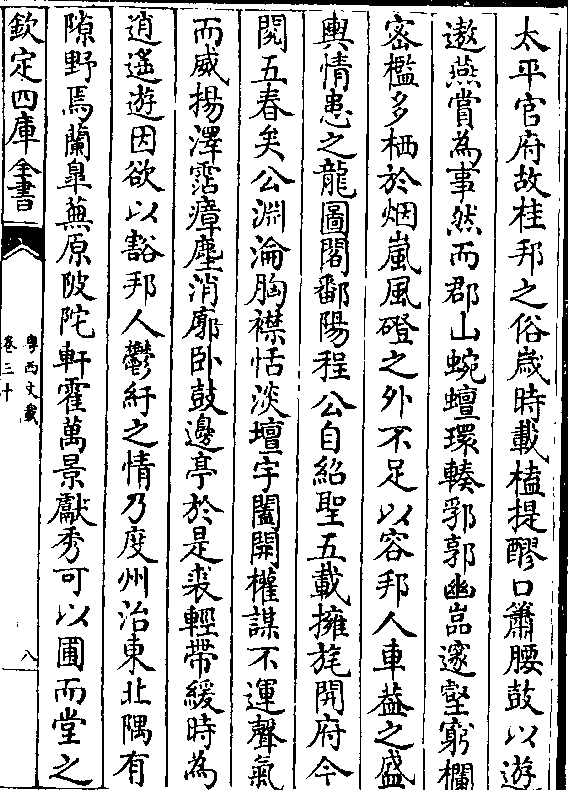 太平官府故桂邦之俗歳時載榼提醪口簫腰鼓以遊
遨燕賞為事然而郡山蜿蟺環輳郛郭幽嵓邃壑窮欄
宻檻多栖於烟嵐風磴之外不足以容邦人車葢之盛
輿情患之龍圖閣鄱陽程公自紹聖五載擁旄開府今
閲五春矣公淵淪胸襟恬淡壇宇闔開權謀不運聲氣
而威揚澤霑瘴塵消廓卧鼓邊亭於是裘輕帶緩時為
逍遥遊因欲以豁邦人鬱紆之情乃度州治東北隅有
隙野焉蘭臯蕪原陂陀軒霍萬景獻秀可以圃而堂之
欽定四庫全書
粤西文載
卷三十
八